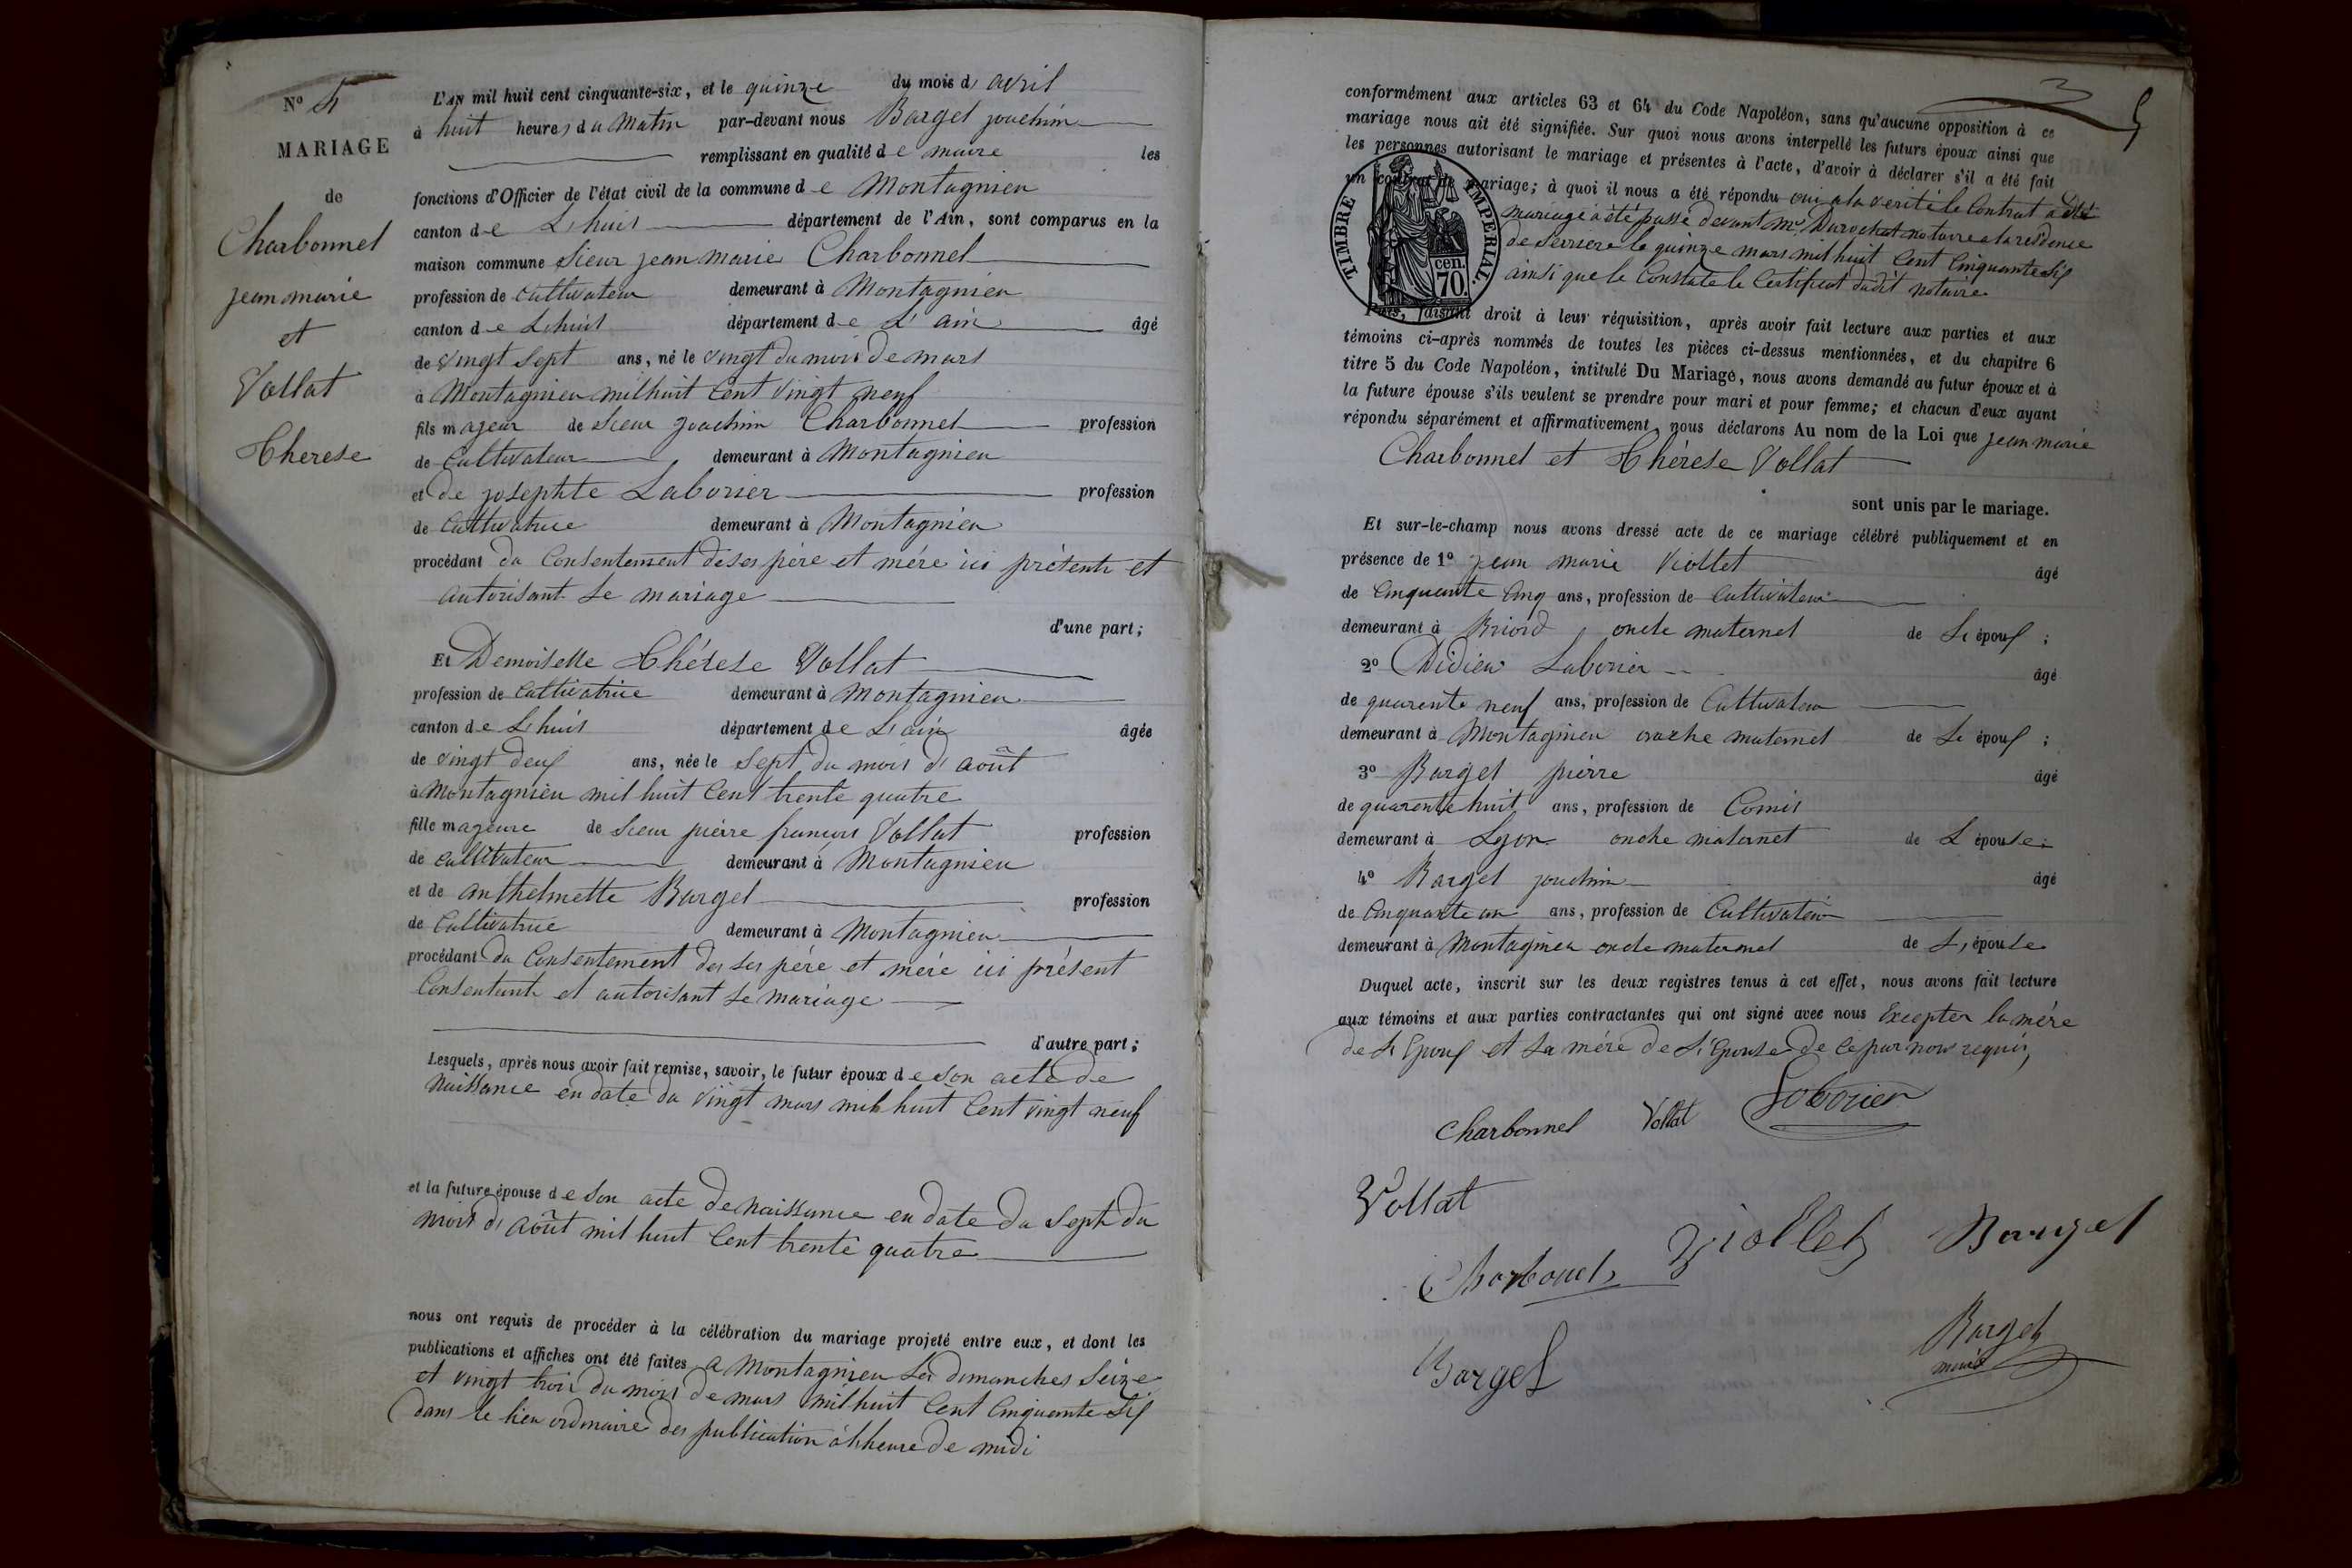 N° 4
MARIAGE
de
Charbonnel
jean marie
et
Vollat
Therese
L'AN mil huit cent cinquante-six, et le quinze du mois d' avril
à huit heures du Matin par-devant nous Barget joachim
remplissant en qualité de maire les
fonctions d'Officier de l'état civil de la commune de Montagnieu
canton de Lhuis département de l'Ain, sont comparus en la
maison commune Sieur jean marie Charbonnel
profession de cultivateur demeurant à Montagnieu
canton de Lhuis département de L'ain âgé
de vingt sept ans, né le vingt du mois de mars
à Montagnieu mil huit Cent vingt neuf
fils majeur de Sieur joachim Charbonnel profession
de Cultivateur demeurant à Montagnieu
et de josephte Laborier profession
de Cultivatrice demeurant à Montagnieu
procédant du Consentement de ses père et mére ici présents et
autorisant Le mariage
d'une part;
Et Demoiselle Thérese Vollat
profession de Cultivatrice demeurant à Montagnieu
canton de Lhuis département de L'ain âgée
de vingt deux ans, née le Sept du mois d'août
à Montagnieu mil huit Cent trente quatre
fille majeure de Sieur pierre françois Vollat profession
de cultivateur demeurant à Montagnieu
et de anthelmette Barget profession
de Cultivatrice demeurant à Montagnieu
procédant du Consentement des ses pére et mére ici présent
Consentant et autorisant Le mariage
d'autre part;
Lesquels, après nous avoir fait remise, savoir, le futur époux de son acte de
naissance en date du vingt mars mil huit Cent vingt neuf
et la future épouse de son acte de naissance en date du Sept du
mois d'août mil huit Cent trente quatre
nous ont requis de procéder à la célébration du mariage projeté entre eux, et dont les
publications et affiches ont été faites a Montagnieu Les dimanches Seize
et vingt trois du mois de mars mil huit Cent Cinquante Six
dans le lieu ordinaire des publication à l'heure de midi
5
conformément aux articles 63 et 64 du Code Napoléon, sans qu'aucune opposition à ce
mariage nous ait été signifiée. Sur quoi nous avons interpellé les futurs époux ainsi que
les personnes autorisant le mariage et présentes à l'acte, d'avoir à déclarer s'il a été fait
un contrat de mariage; à quoi il nous a été répondu oui a la vérité le Contrat a été
mariage a été passé devant Me Durochat notaire a la résidence
de Serriere le quinze mars mil huit Cent Cinquante Six
ainsi que le Constate le Certificat dudit notaire
TIMBRE IMPERIAL.
cen.
70.
Puis, faisant droit à leur réquisition, après avoir fait lecture aux parties et aux
témoins ci-après nommés de toutes les pièces ci-dessus mentionnées, et du chapitre 6
titre 5 du Code Napoléon, intitulé Du Mariage, nous avons demandé au futur époux et à
la future épouse s'ils veulent se prendre pour mari et pour femme; et chacun d'eux ayant
répondu séparément et affirmativement, nous déclarons Au nom de la Loi que jean marie
Charbonnel et Thérèse Vollat
sont unis par le mariage.
Et sur-le-champ nous avons dressé acte de ce mariage célébré publiquement et en
présence de 1° jean marie Viollet âgé
de Cinquante Cinq ans, profession de Cultivateur
demeurant à Briord oncle maternel de L'époux;
2° Didieu Laborier âgé
de quarente neuf ans, profession de Cultivateur
demeurant à Montagnieu oncle maternel de L'époux;
3° Barget pierre âgé
de quarente huit ans, profession de Comis
demeurant à Lyon oncle maternel de L'épouse;
4° Barget joachim âgé
de Cinquante un ans, profession de Cultivateur
demeurant à Montagnieu oncle maternel de L'épouse
Duquel acte, inscrit sur les deux registres tenus à cet effet, nous avons fait lecture
aux témoins et aux parties contractantes qui ont signé avec nous Excepter la mére
de L'Epoux et La mére de L'Epouse de ce par nous requis,
Charbonnel Vollat Laborier
Vollat
Charbonel Viollet Barget
Barget
Barget
maire